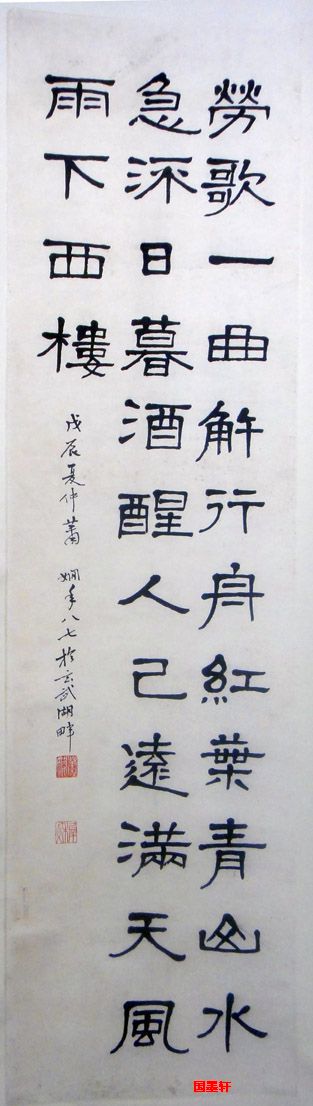 勞歌一曲解行舟紅葉青山水
急流日暮酒醒人已遠滿天風
雨下西樓
戊辰夏仲蕭嫻年八七於玄武湖畔
国墨轩